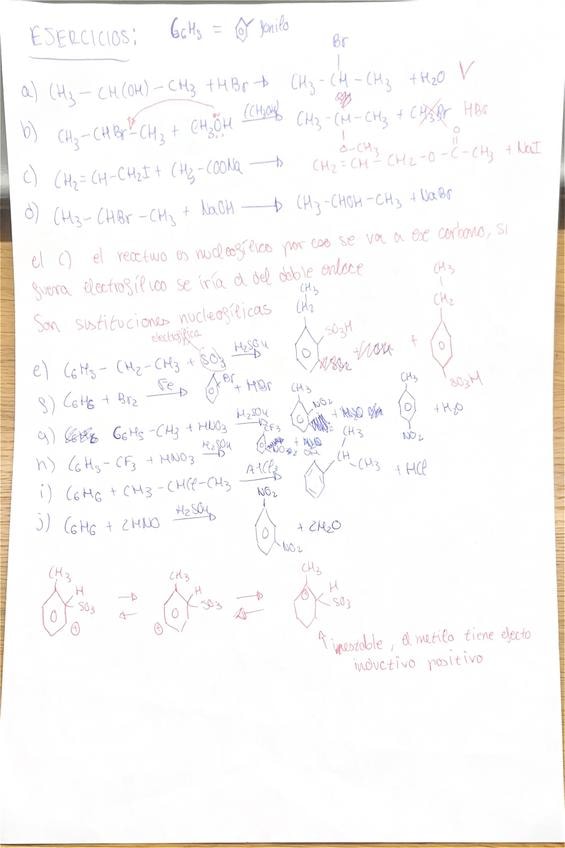 EJERCICIOS: C6H5 = fenilo
Br
a) CH3 - CH(OH) - CH3 + HBr → CH3 - CH - CH3 + H2O
b) CH3 - CHBr - CH3 + CH3OH (CH3OH) CH3 - CH - CH3 + CH3Br HBr
O - CH3 O
c) CH2 = CH - CH2I + CH3 - COONa → CH2 = CH - CH2 - O - C - CH3 + NaI
d) CH3 - CHBr - CH3 + NaOH → CH3 - CHOH - CH3 + NaBr
el c) el reactivo es nucleofílico por eso se va a ese carbono, si
fuera electrofílico se iría a del doble enlace
Son sustituciones nucleofílicas
electrofílica
CH3 CH3
CH2 CH2
e) C6H5 - CH2 - CH3 + SO3 H2SO4 → SO3H + SO3H
f) C6H6 + Br2 Fe → Br + HBr
CH3 CH3
g) C6H5 - CH3 + HNO3 H2SO4 → NO2 + NO2 + H2O
h) C6H5 - CF3 + HNO3 H2SO4 → CF3
CH3
i) C6H6 + CH3 - CHCl - CH3 AlCl3 → CH - CH3 + HCl
NO2
j) C6H6 + 2HNO H2SO4 → NO2 + 2H2O
CH3 CH3 CH3
H H H
SO3 ⇄ SO3 ⇄ SO3
+ + +
↑ inestable, el metilo tiene efecto
inductivo positivo